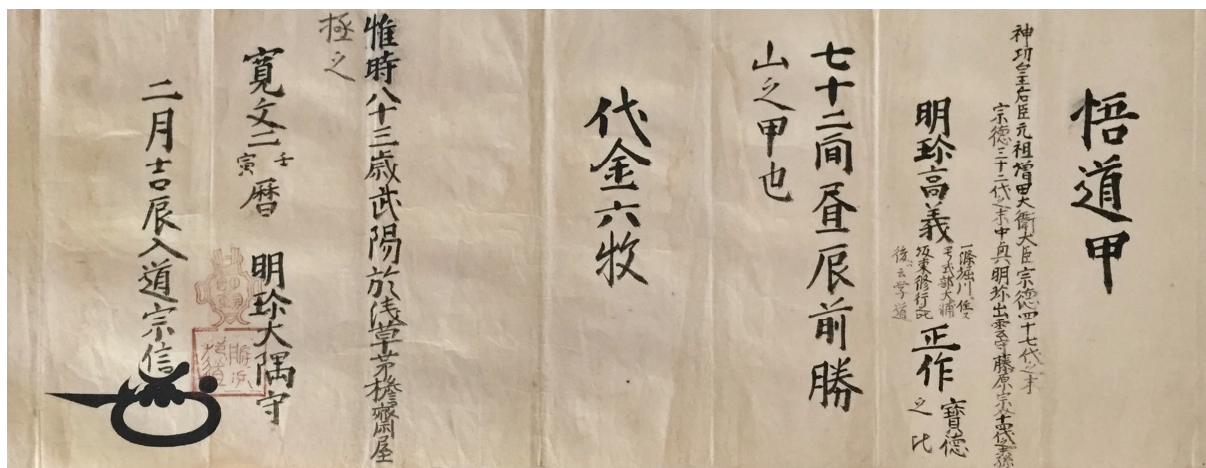 悟道甲
神功皇后臣元祖増甲大衛大臣宗徳四十七代之末
宗徳三十二代之末中興明珎出雲守藤原宗
明珎高義
一條堀川住ス
号式部大浦
坂東修行此
後ニ云学道
正作
寶徳
之比
七十二间昼辰前勝
山之甲也
代金六牧
惟時八十三歳武陽於浅草茅檐齋屋
極之
寛文二壬寅暦 明珎大隅守
二月吉辰入道宗信